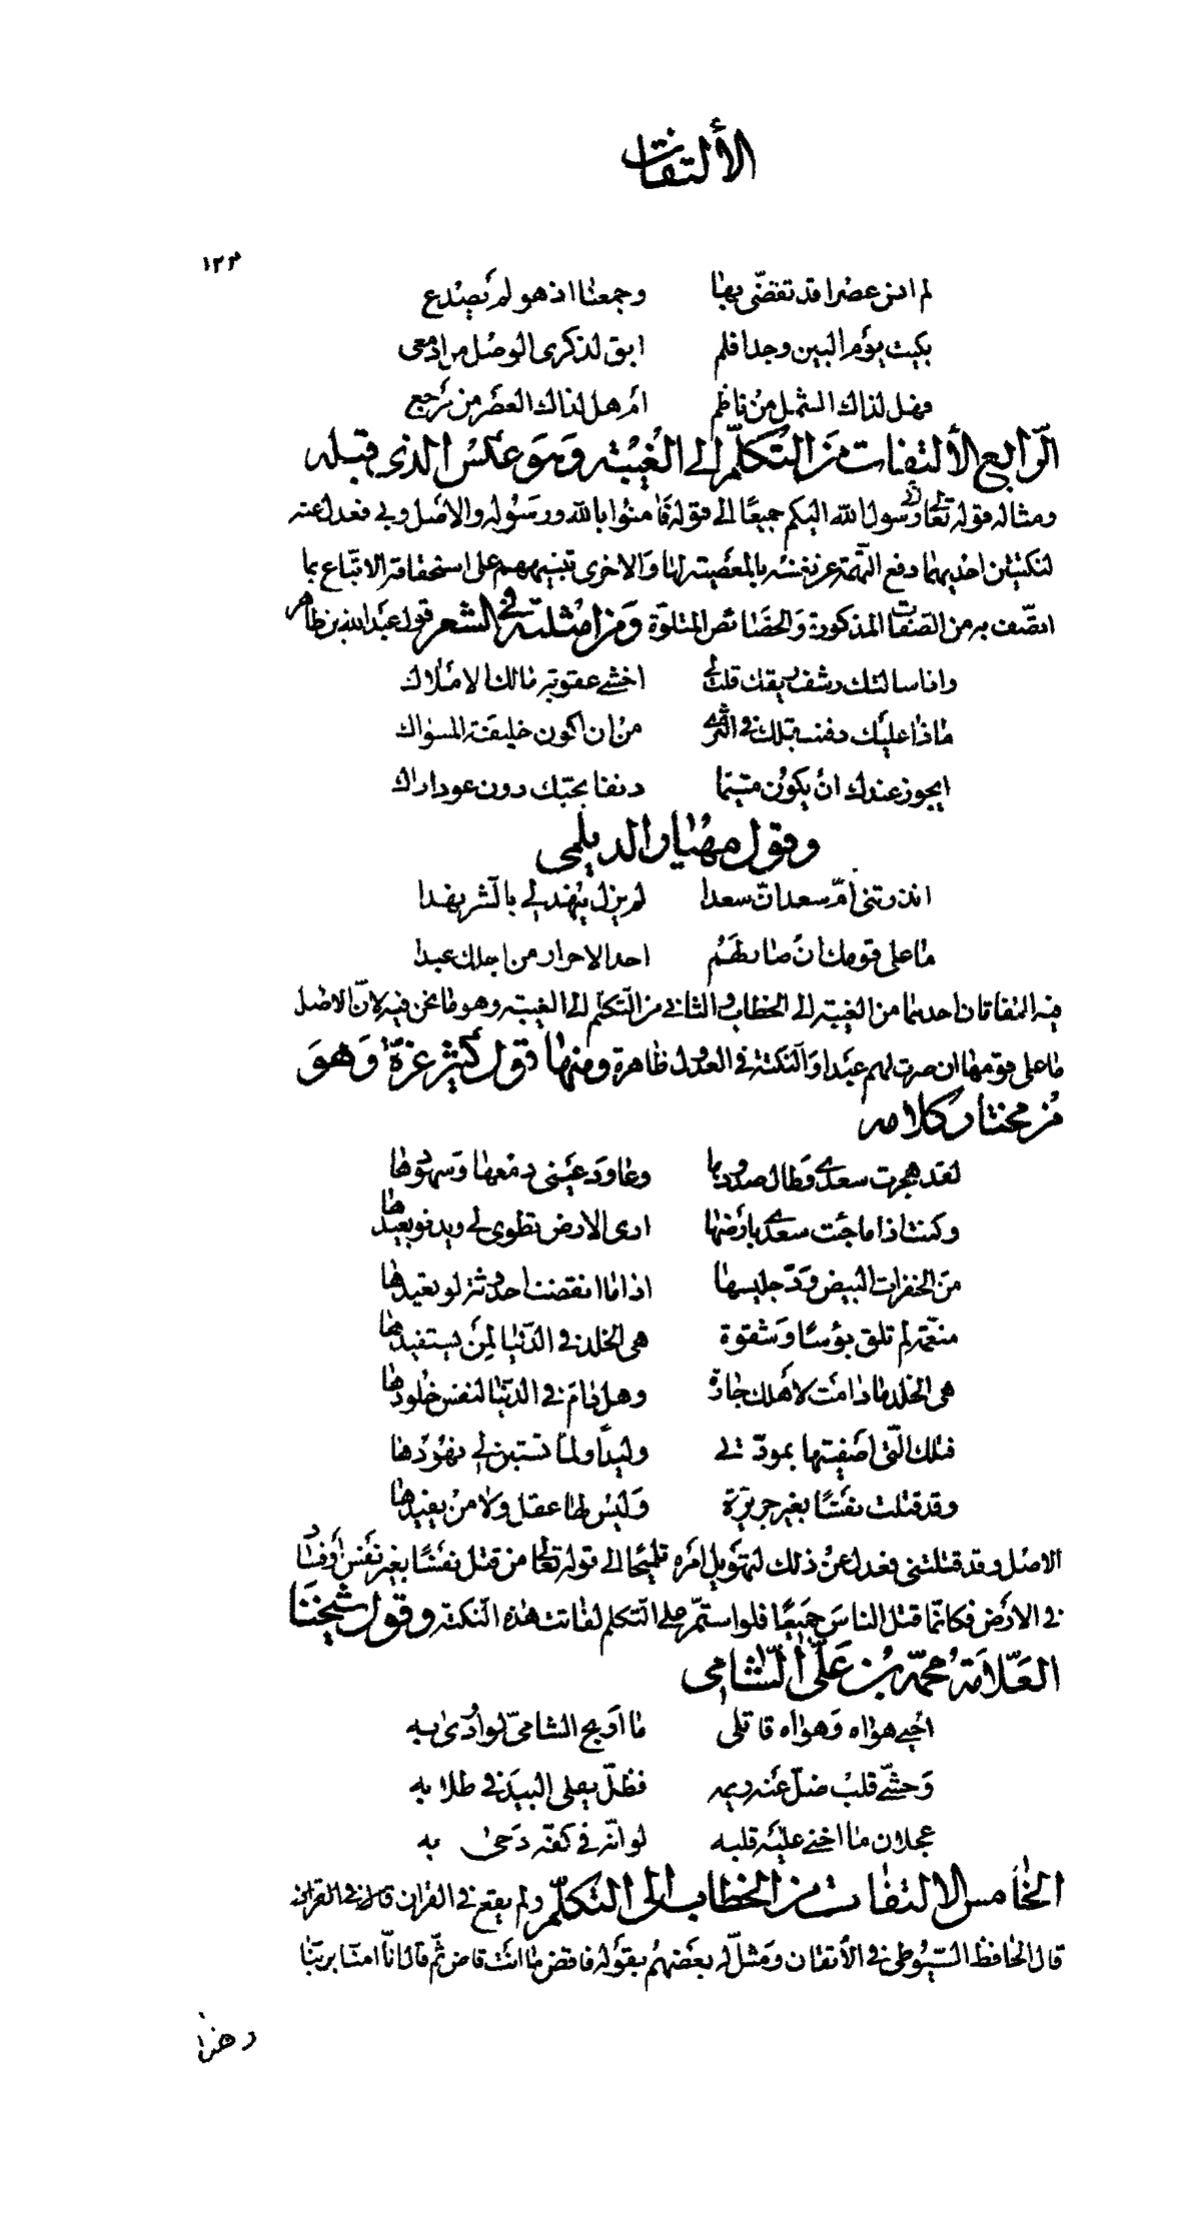 الألتفات
١٢٣
لم انس عصرا قد تقضّى بها وجمعنا اذ هو لم يصدع
بكيت يوم البين وجدا فلم ابق لذكرى الوصل من ادمعى
فهل لذاك الشمل من ناظم ام هل لذاك العصر من مرجع
الرّابع الألتفات من التكلّم الى الغيبته وهو عكس الذى قبله
ومثاله قوله تعالى انى رسول الله اليكم جميعًا الى قوله فامنوا بالله ورسوله والاصل وبى فعدل عنه
لنكتتين احديهما دفع التّهمة عن نفسه بالعصبيته لها والاخرى تنبيههم على استحقاقه الاتباع بما
اتصّف به من الصّفات المذكورة والخصائص المتلوّة ومن امثلته فى الشعر قول عبد الله بن طاهر
واذا سالتك رشف ريقك قلت لى اخشى عقوبة مالك الاملاك
ماذا عليك دفنت قبلك فى الثرى من ان اكون خليفة المسواك
ايجوز عندك ان يكون متيّما دنفا بحبّك دون عود اراك
وقول مهيار الديلمى
انذرتنى امّ سعد انّ سعدا لم يزل ينهد لى بالشر نهدا
ما على قومك ان صار لهم احد الاحرار من اجلك عبدا
فيه التفاتان احدهما من الغيبته الى الخطاب والثانى من التّكلّم الى الغيبته وهو ما نحن فيه لانّ الاصل
ما على قومها ان صرت لهم عبدا والنكتة فى العدول ظاهرة ومنها قول كثيّر عزّة وهو
من مختار كلامه
لقد هجرت سعدى وطال صدودها وعاود عينى دمعها وسهودها
وكنت اذا ما جئت سعدى بارضها ارى الارض تطوى لى ويدنو بعيدها
من الخفرات البيض ودّ جليسها اذا ما انقضت احدوثة لو يعيدها
منعّمة لم تلق بؤسًا وشقوة هى الخلد فى الدّنيا لمن يستفيدها
هى الخلد ما دامت لاهلك جارة وهل دام فى الدنيا لنفس خلودها
فتلك الّتى اصفيتها بمودّتى وليدًا ولما تستبن لى نهودها
وقد قتلت نفسًا بغير جريرة وليس لها عقل ولا من يقيدها
الاصل وقد قتلتنى فعدل عن ذلك لتهويل امره تلميحًا الى قوله تعالى من قتل نفسًا بغير نفس او فساد
فى الارض فكانّما قتل الناس جميعًا فلو استمرّ على التّكلم لفاتت هذه النّكتة وقول شيخنا
العلّامة محمّد بن علىّ الشّامى
احبى هواه وهواه قاتلى ما اربح الشامىّ لو اودى به
وحشىّ قلب ضلّ عنه ريمه فظلّ يعلى البيد فى طلابه
عجلان ما اخنى عليه قلبه لو انّه فى كفّه دحى به
الخامس الالتفات من الخطاب الى التكلّم ولم يقع فى القران
قال الحافظ السّيوطى فى الأتقان ومثّل له بعضهم بقوله فاقض ما انت قاض ثمّ قال انّا امنّا بربّنا
وهذا